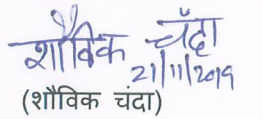 शौविक चंद्रा
21/11/2019
(शौविक चंदा)